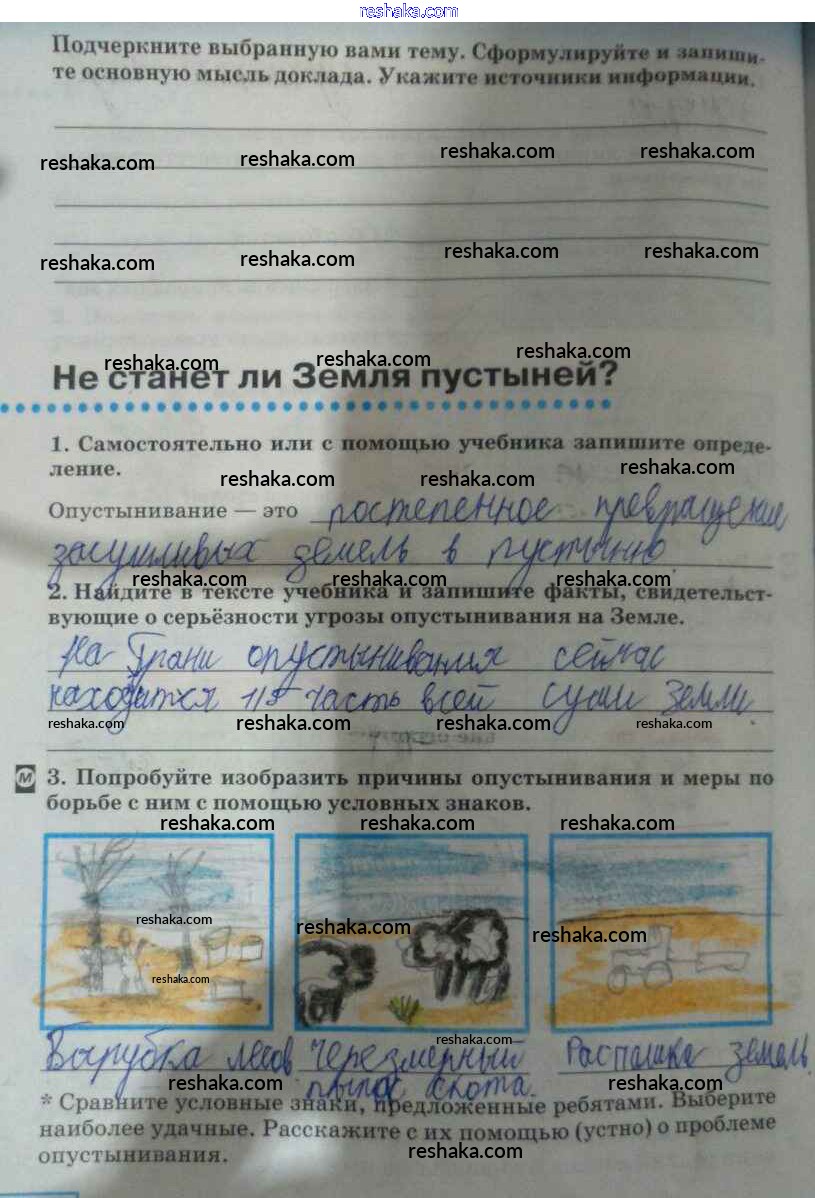 reshaka.com
Подчеркните выбранную вами тему. Сформулируйте и запиши-
те основную мысль доклада. Укажите источники информации.
reshaka.com reshaka.com reshaka.com reshaka.com
reshaka.com reshaka.com reshaka.com reshaka.com
reshaka.com reshaka.com reshaka.com
Не станет ли Земля пустыней?
1. Самостоятельно или с помощью учебника запишите опреде-
ление.
reshaka.com reshaka.com reshaka.com
Опустынивание — это постепенное превращение
засушливых земель в пустынно
reshaka.com reshaka.com reshaka.com
2. Найдите в тексте учебника и запишите факты, свидетельст-
вующие о серьёзности угрозы опустынивания на Земле.
На грани опустынивания сейчас
находится 1/5 часть всей суши Земли.
reshaka.com reshaka.com reshaka.com reshaka.com
М 3. Попробуйте изобразить причины опустынивания и меры по
борьбе с ним с помощью условных знаков.
reshaka.com reshaka.com reshaka.com
reshaka.com reshaka.com reshaka.com
reshaka.com
reshaka.com
Вырубка лесов Черезмерный Распашка земель
скота.
reshaka.com reshaka.com
* Сравните условные знаки, предложенные ребятами. Выберите
наиболее удачные. Расскажите с их помощью (устно) о проблеме
опустынивания.
reshaka.com